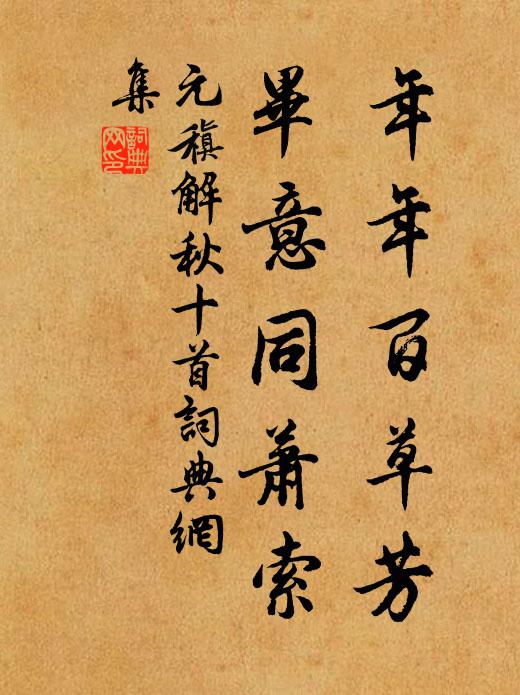 年年百草芳
畢意同蕭索
元稹解秋十首詞典網
集
詞典網印